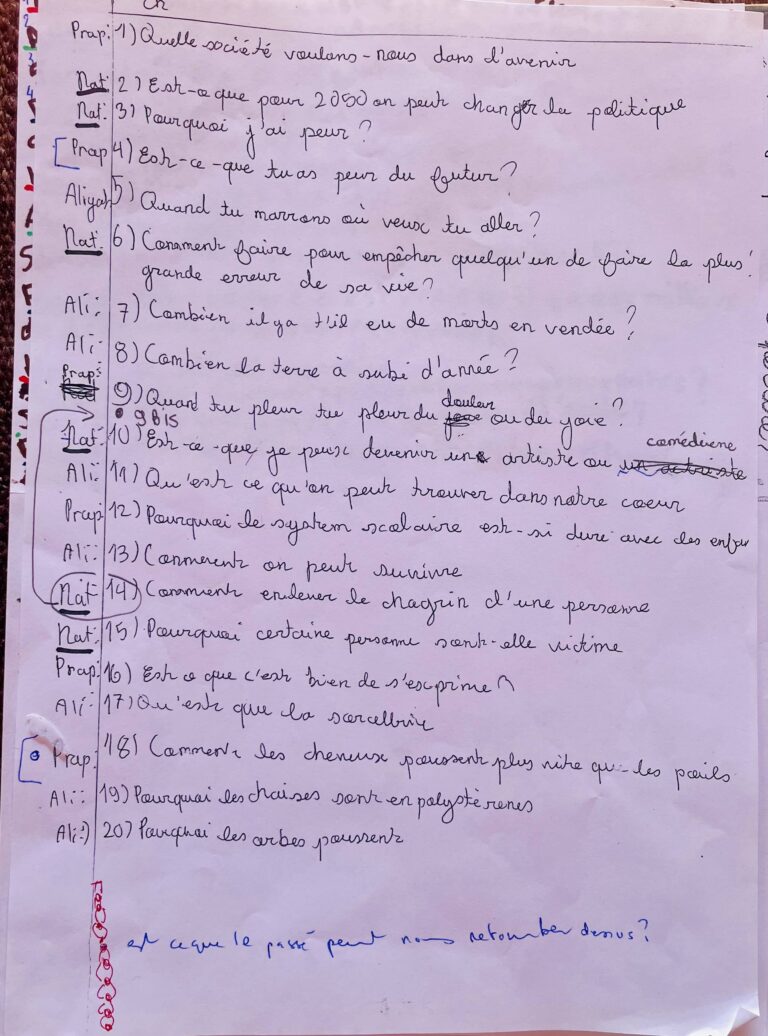 Prap: 1) Quelle société voulons-nous dans l'avenir
Nat: 2) Est-ce que pour 2050 on peut changer la politique
Nat: 3) Pourquoi j'ai peur ?
Prap 4) Est-ce-que tu as peur du futur ?
Aliyah 5) Quand tu marrons où veux tu aller ?
Nat: 6) Comment faire pour empêcher quelqu'un de faire la plus
grande erreur de sa vie ?
Ali: 7) Combien il ya t'il eu de morts en vendée ?
Ali: 8) Combien la terre à subi d'année ?
Prap: 9) Quand tu pleur tu pleur du douleur ou du joie ?
• 9 BIS
Nat: 10) Est-ce-que je peux devenir une artiste ou comédiene
Ali: 11) Qu'est ce qu'on peut trouver dans notre coeur
Prap: 12) Pourquoi le system scolaire est-si dure avec les enfan
Ali: 13) Comment on peut survivre
Nat 14) Comment enlever le chagrin d'une personne
Nat: 15) Pourquoi certaine personne sont-elle victime
Prap: 16) Est ce que c'est bien de s'esprime ?
Ali: 17) Qu'est que la sorcellrie
Prap: 18) Comment les cheveux poussent plus vite que les poils
Ali: 19) Pourquoi les chaises sont en polystérenes
Ali:) 20) Pourquoi les arbes poussent
est ce que le passé peut nous retomber dessus ?